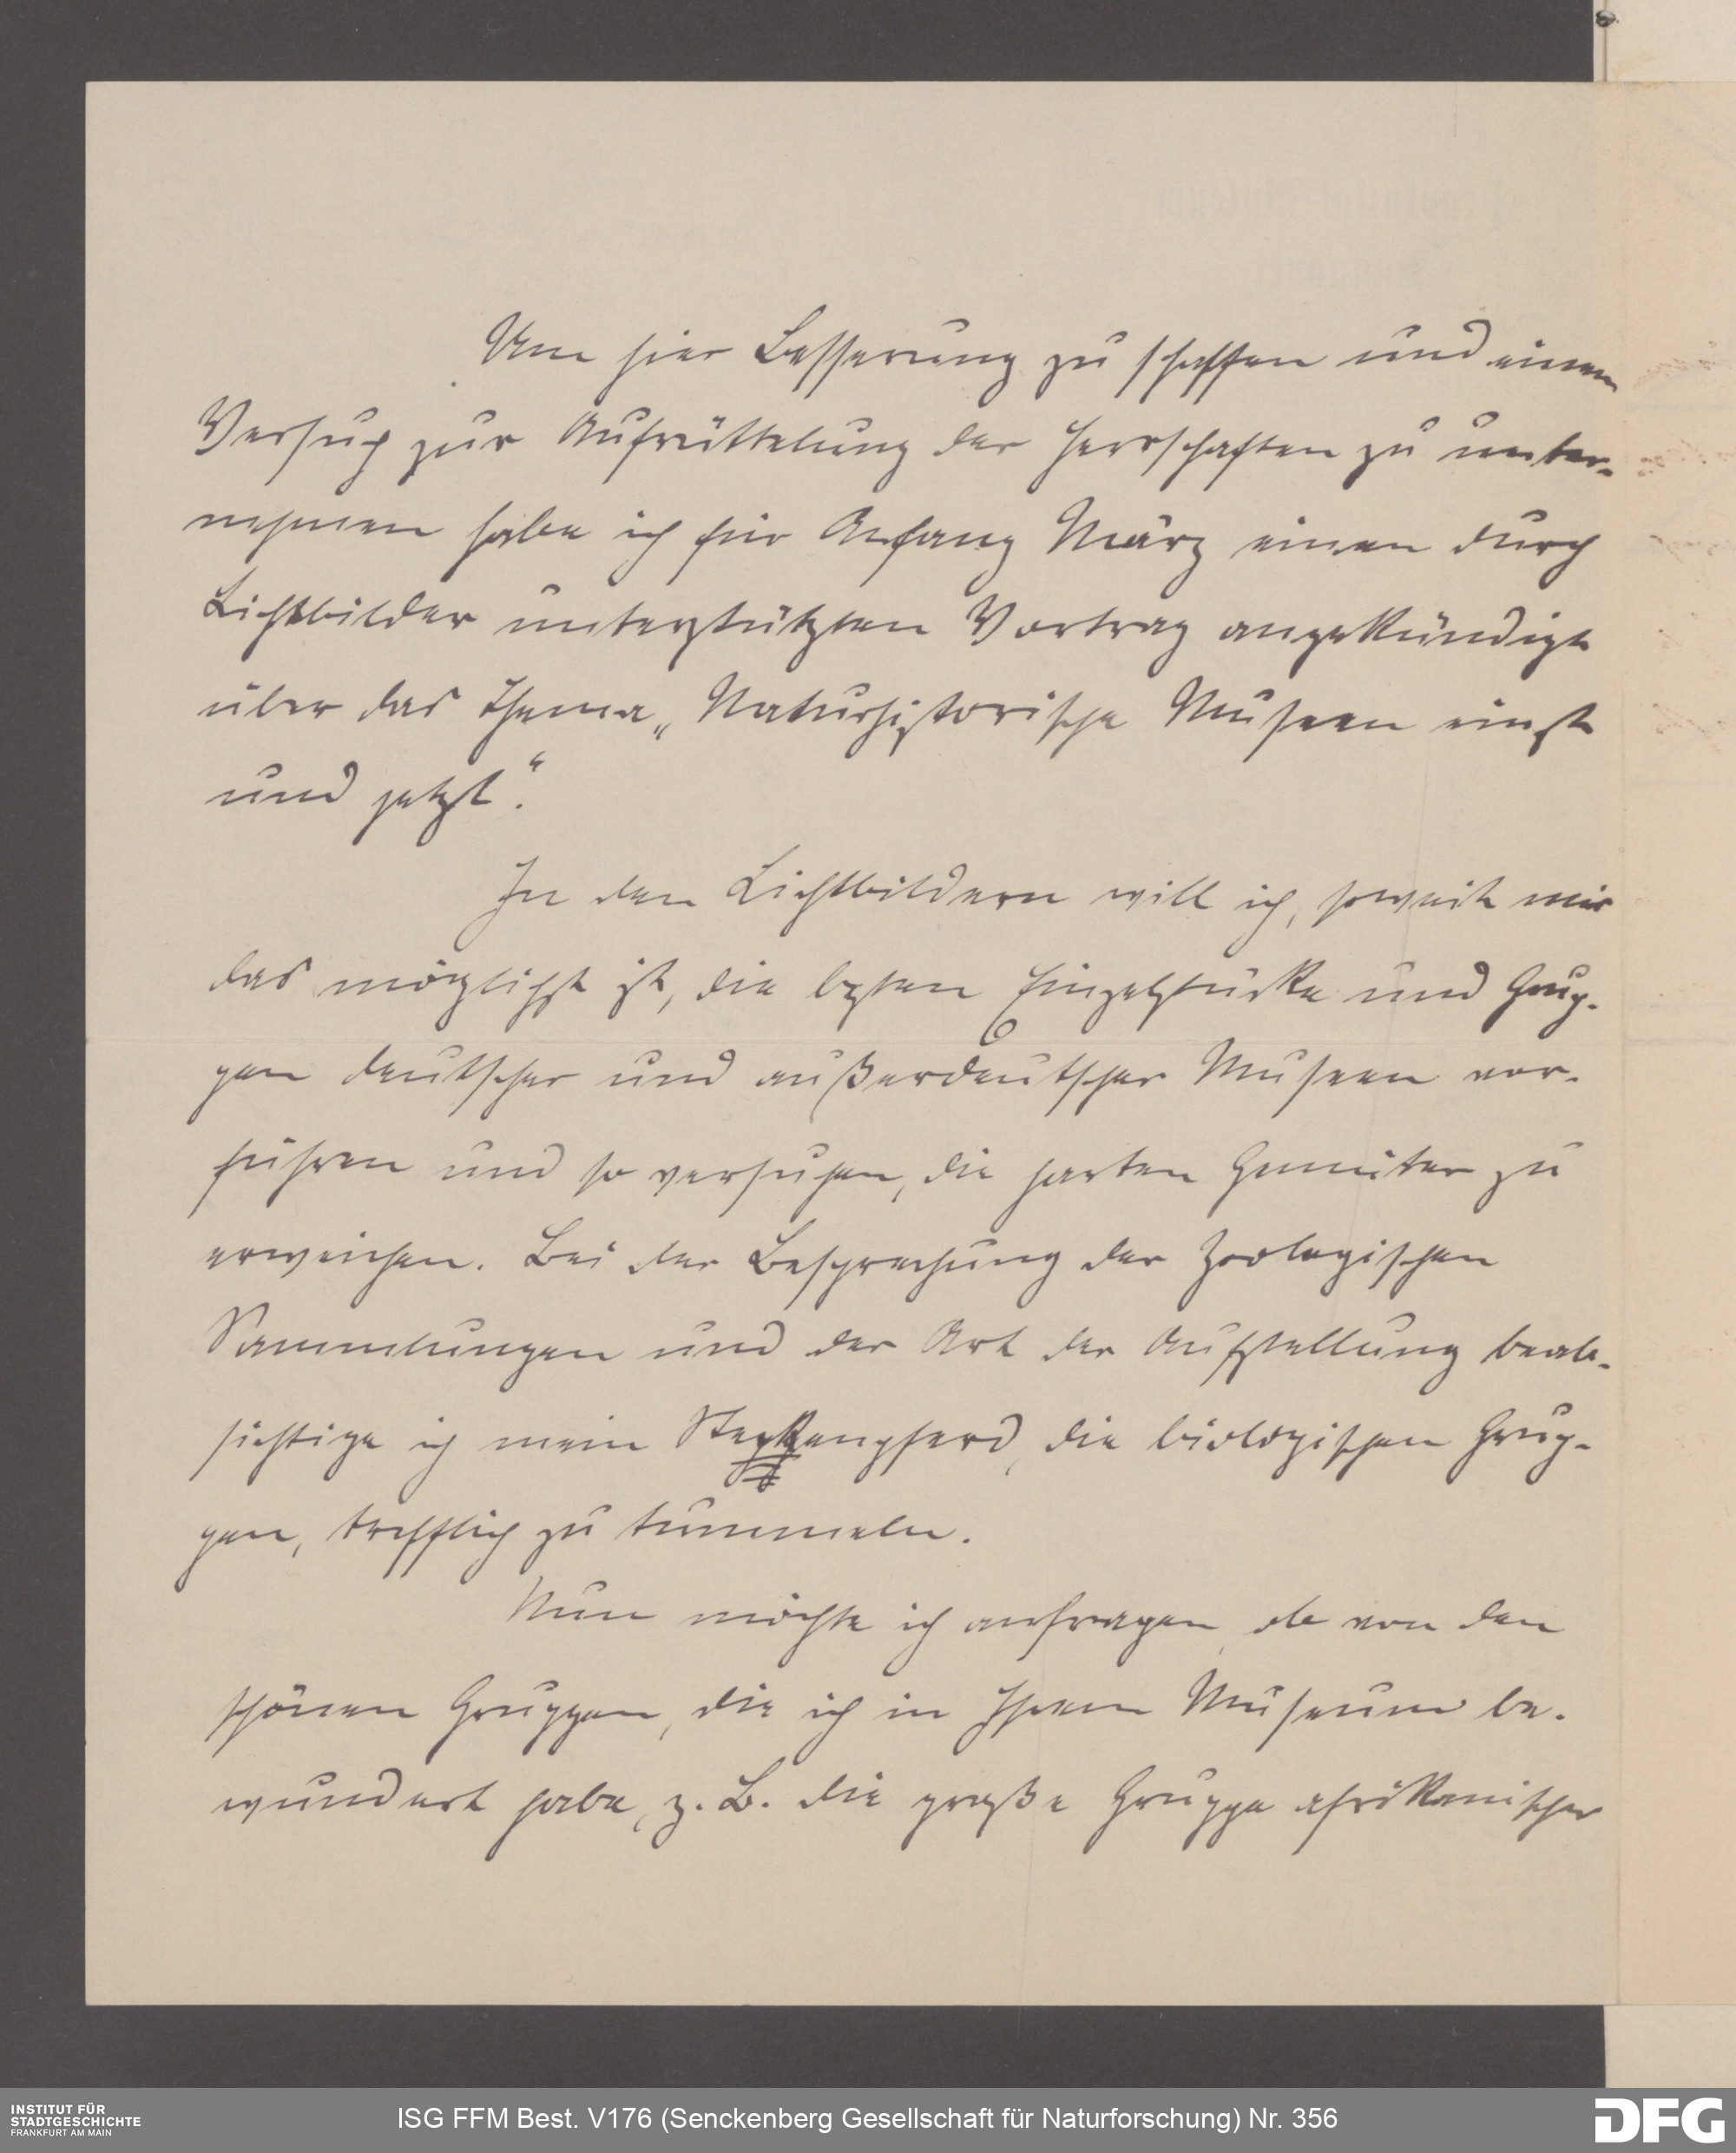 Um hier Besserung zu schaffen und einen
Versuch zur Aufrüttelung der Herrschaften zu unter-
nehmen habe ich für Anfang März einen durch
Lichtbilder unterstützten Vortrag angekündigt
über das Thema „Naturhistorische Museen einst
und jetzt“.
In den Lichtbildern will ich, soweit mir
das möglichst ist, die besten Einzelstücke und Grup-
pen deutscher und außerdeutscher Museen vor-
führen und so versuchen, die harten Gemüter zu
erweichen. Bei der Besprechung der zoologischen
Sammlungen und der Art der Aufstellung beab-
sichtige ich mein Steckenpferd, die biologischen Grup-
pen, trefflich zu tummeln.
Nun möchte ich anfragen, ob von den
schönen Gruppen, die ich in Ihrem Museum be-
wundert habe, z. B. die große Gruppe afrikanischer
INSTITUT FÜR
STADTGESCHICHTE
FRANKFURT AM MAIN
ISG FFM Best. V176 (Senckenberg Gesellschaft für Naturforschung) Nr. 356
DFG